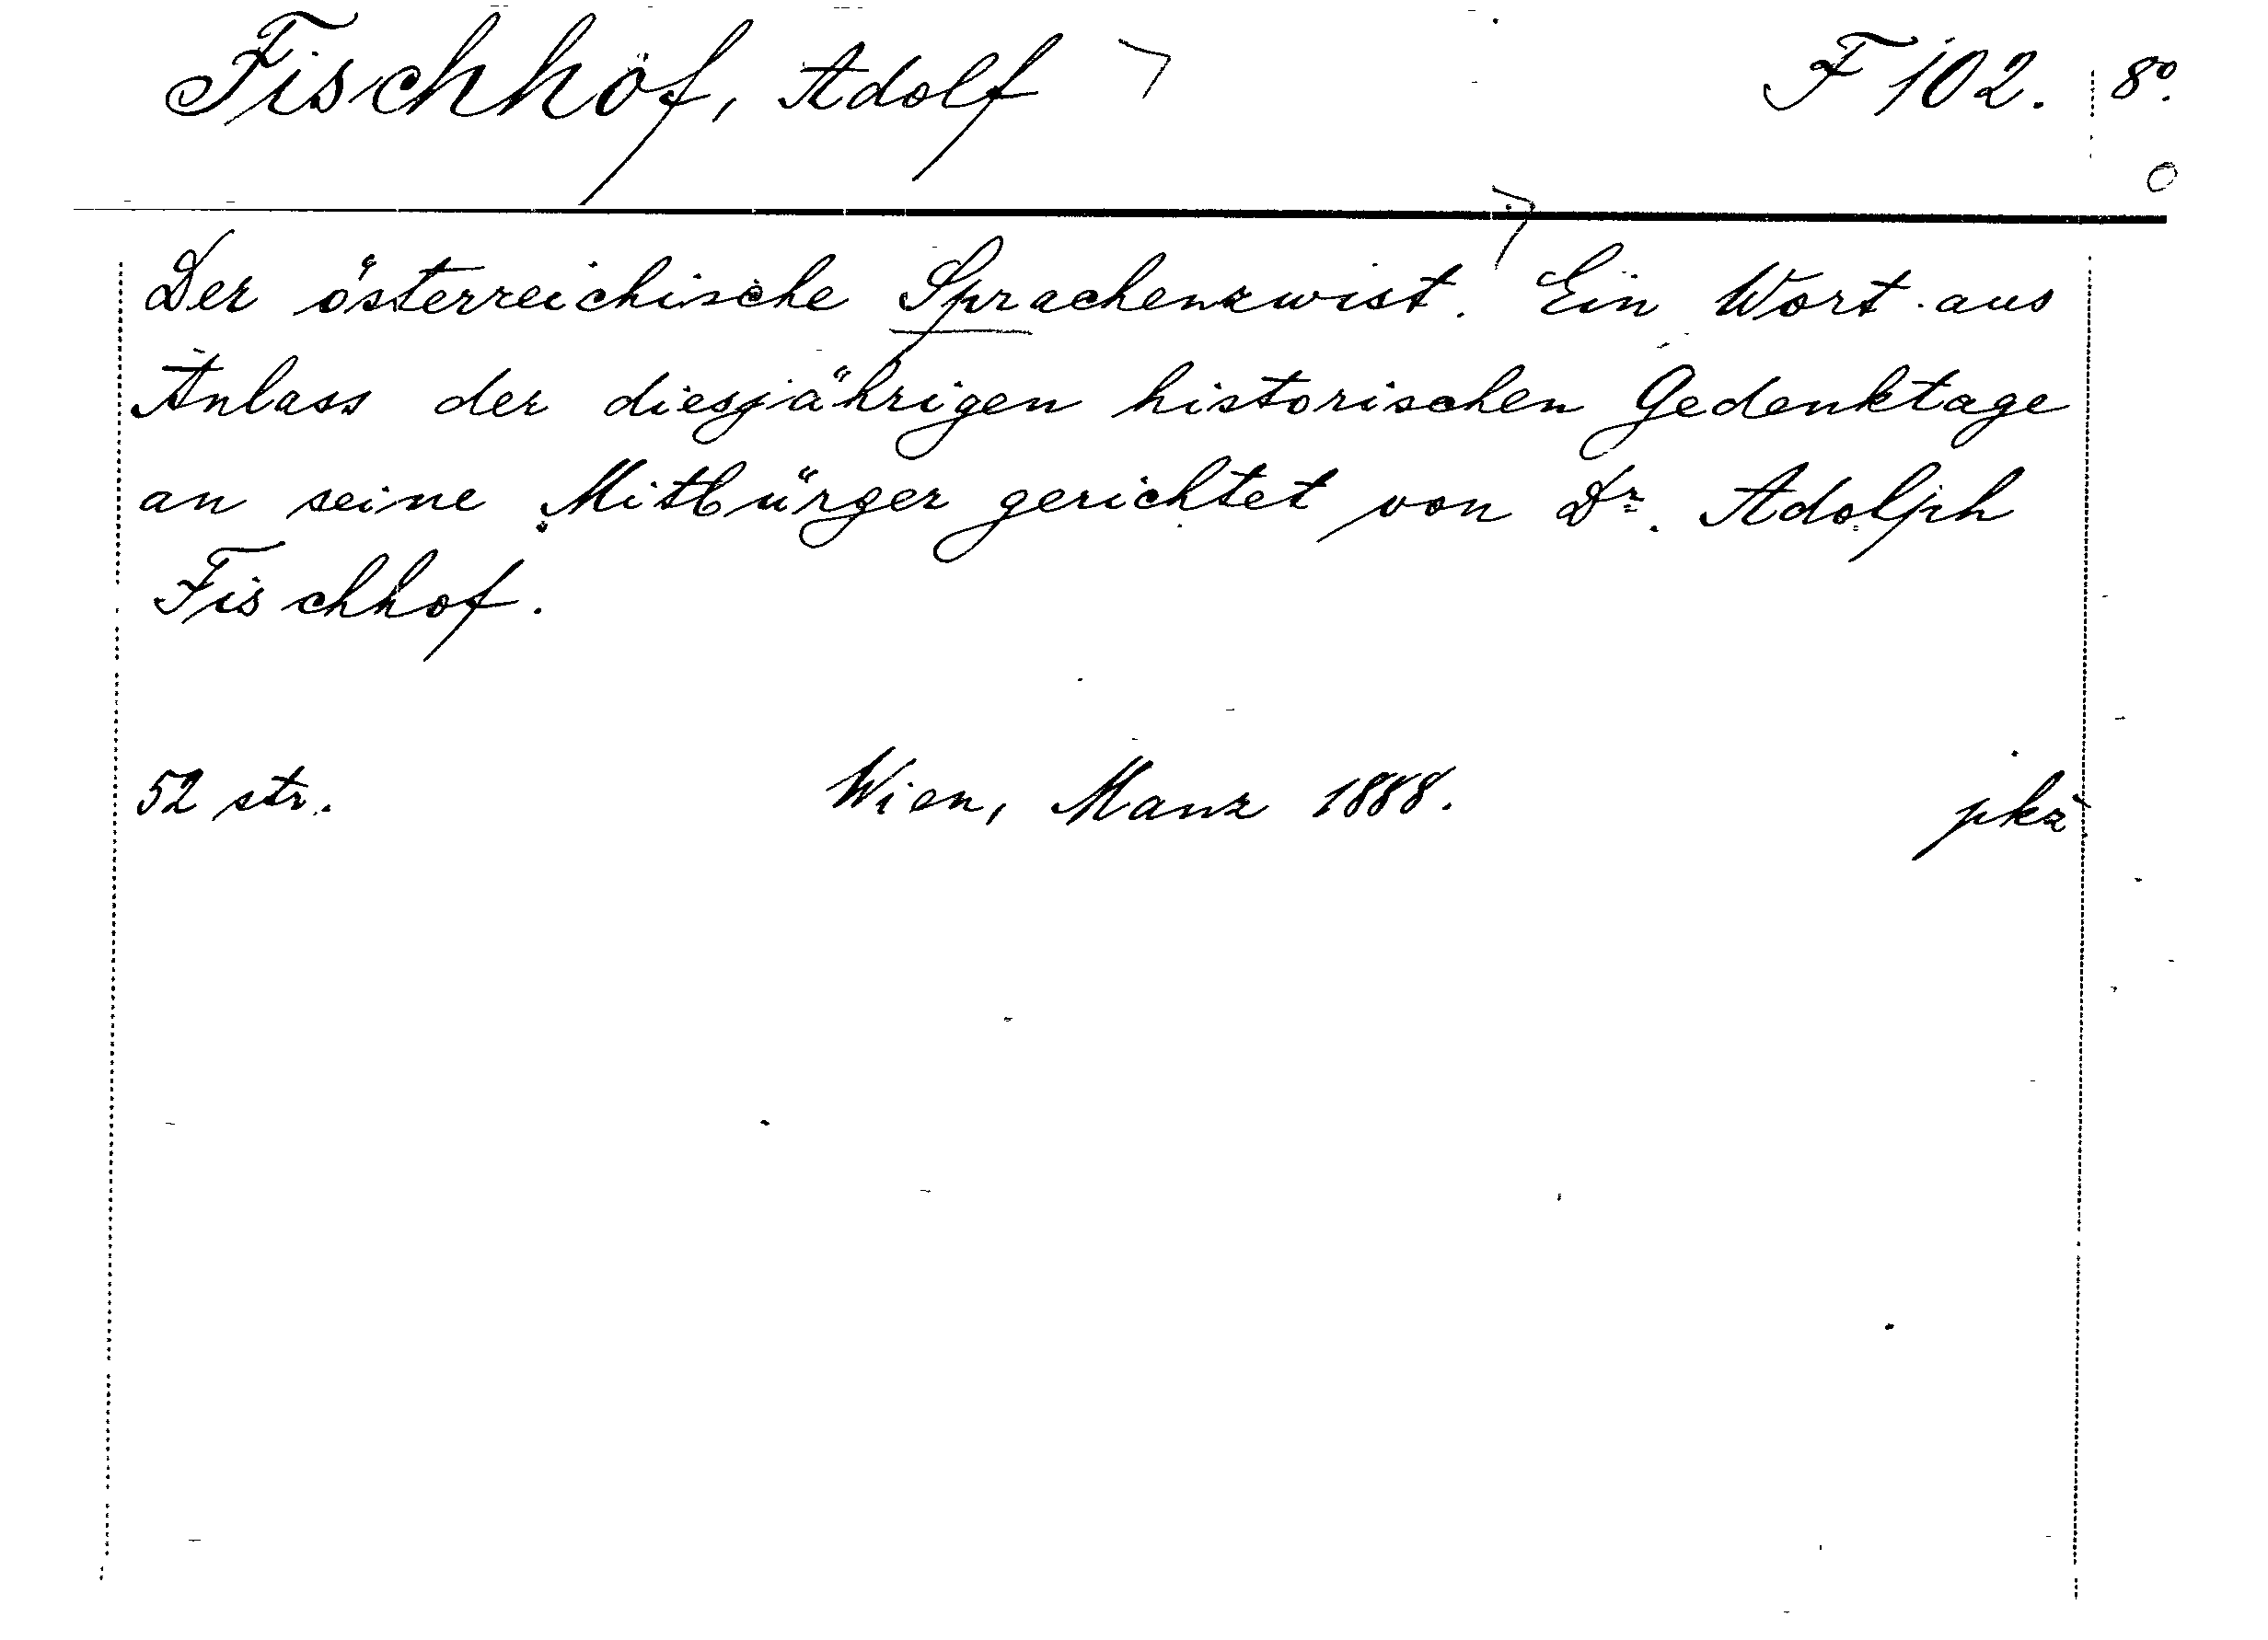 Fischhof, Adolf F 102. 8°.
Der österreichische Sprachenzwist. Ein Wort aus
Anlass der diesjährigen historischen Gedenktage
an seine Mitbürger gerichtet von Dr. Adolph
Fischhof.
52 str. Wien, Manz 1888.